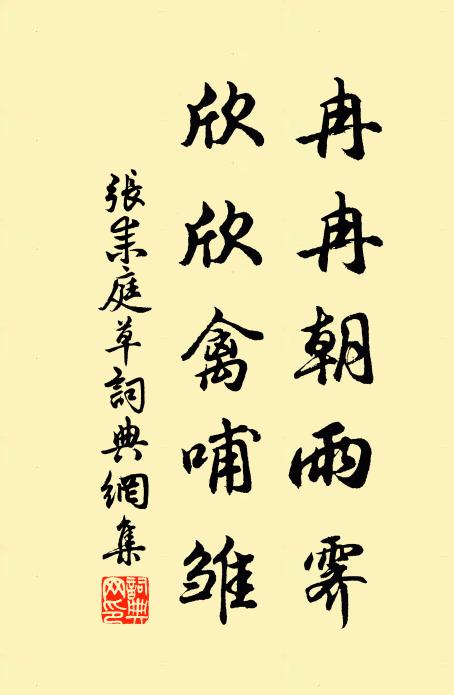 冉冉朝雨霽
欣欣禽哺雛
張耒庭草詞典網集
詞典網印